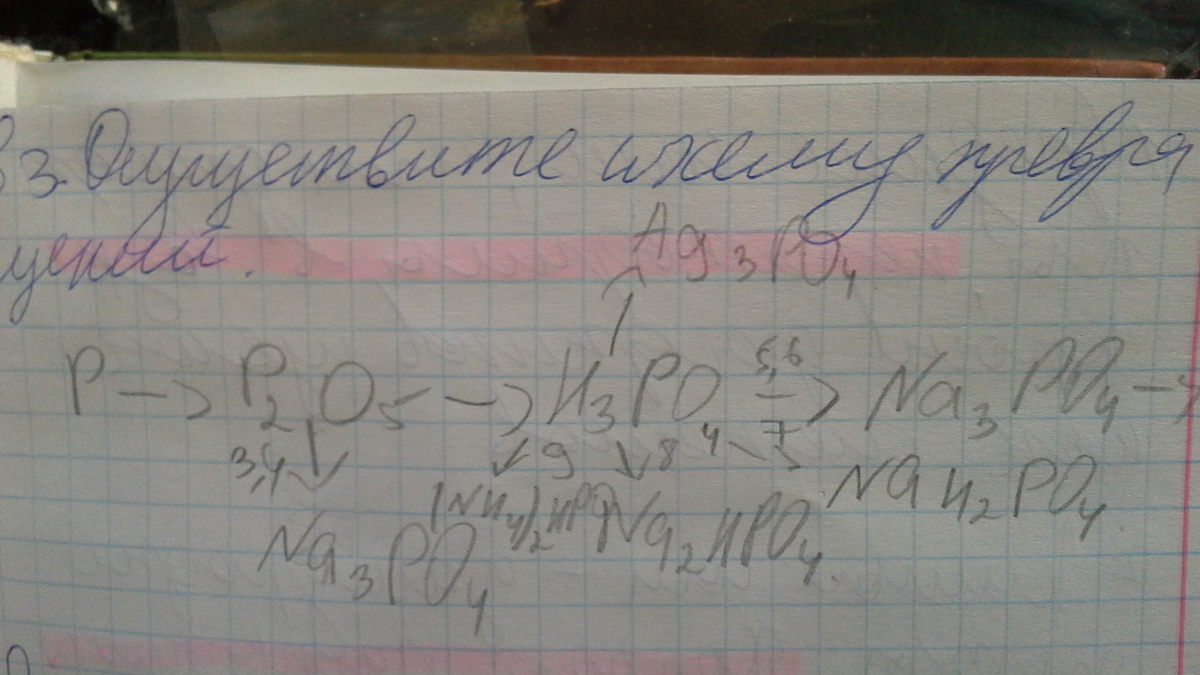 в 3. Осуществите схему превра
щений.
Ag₃PO₄
P → P₂O₅ → H₃PO₄ 5,6 → Na₃PO₄ →
3,4 ↓ ↙ 9 ↘ 8 7 ↘
Na₃PO₄ (NH₄)₂HPO₄ Na₂HPO₄. NaH₂PO₄.